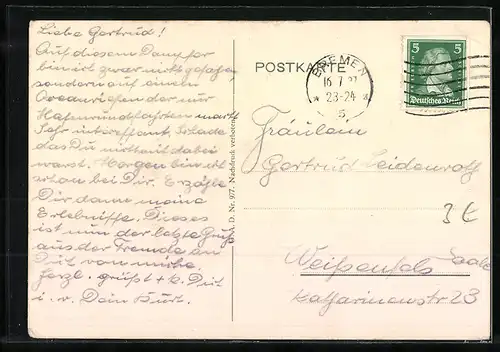 Liebe Gertrud!
Auf diesem Dampfer
bin ich zwar nicht gefahren
sondern auf einem
Ozeanriesen der nur
Hafenrundfahrten macht
Sehr interessant. Schade
das Du nicht mit dabei
warst. Morgen bin ich
schon bei Dir. Erzähle
Dir dann meine
Erlebnisse. Dieses
ist nun der letzte Gruß
aus der Fremde an
Dich von mir.
Herzl. grüßt + k. Dich
i. v. Dein Kurt.
D. Nr. 977. Nachdruck verboten
POSTKARTE
BREMEN
16 7
* 23-24 *
5
5 5
Deutsches Reich
Fräulein
Gertrud Leidenroth
3 €
Weißenfels Saale
Katharinenstr 23